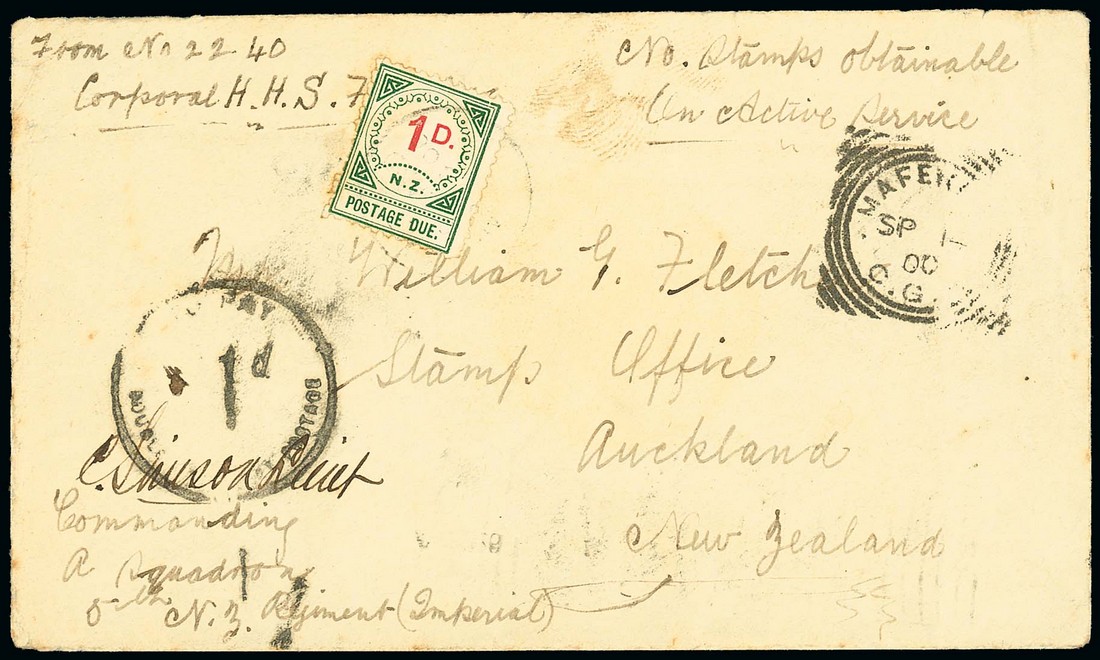 From No 2240
Corporal H. H. S. F
No. Stamps obtainable
On Active Service
1D.
N.Z.
POSTAGE DUE.
MAFEK
SP 1
00
C.G.
Mr William G. Fletch
PAY
1d
DOUBL
POSTAGE
Stamp Office
Auckland
New Zealand
C. Simson Lieut
Commanding
A Squadron
5th N. Z. Regiment (Imperial)